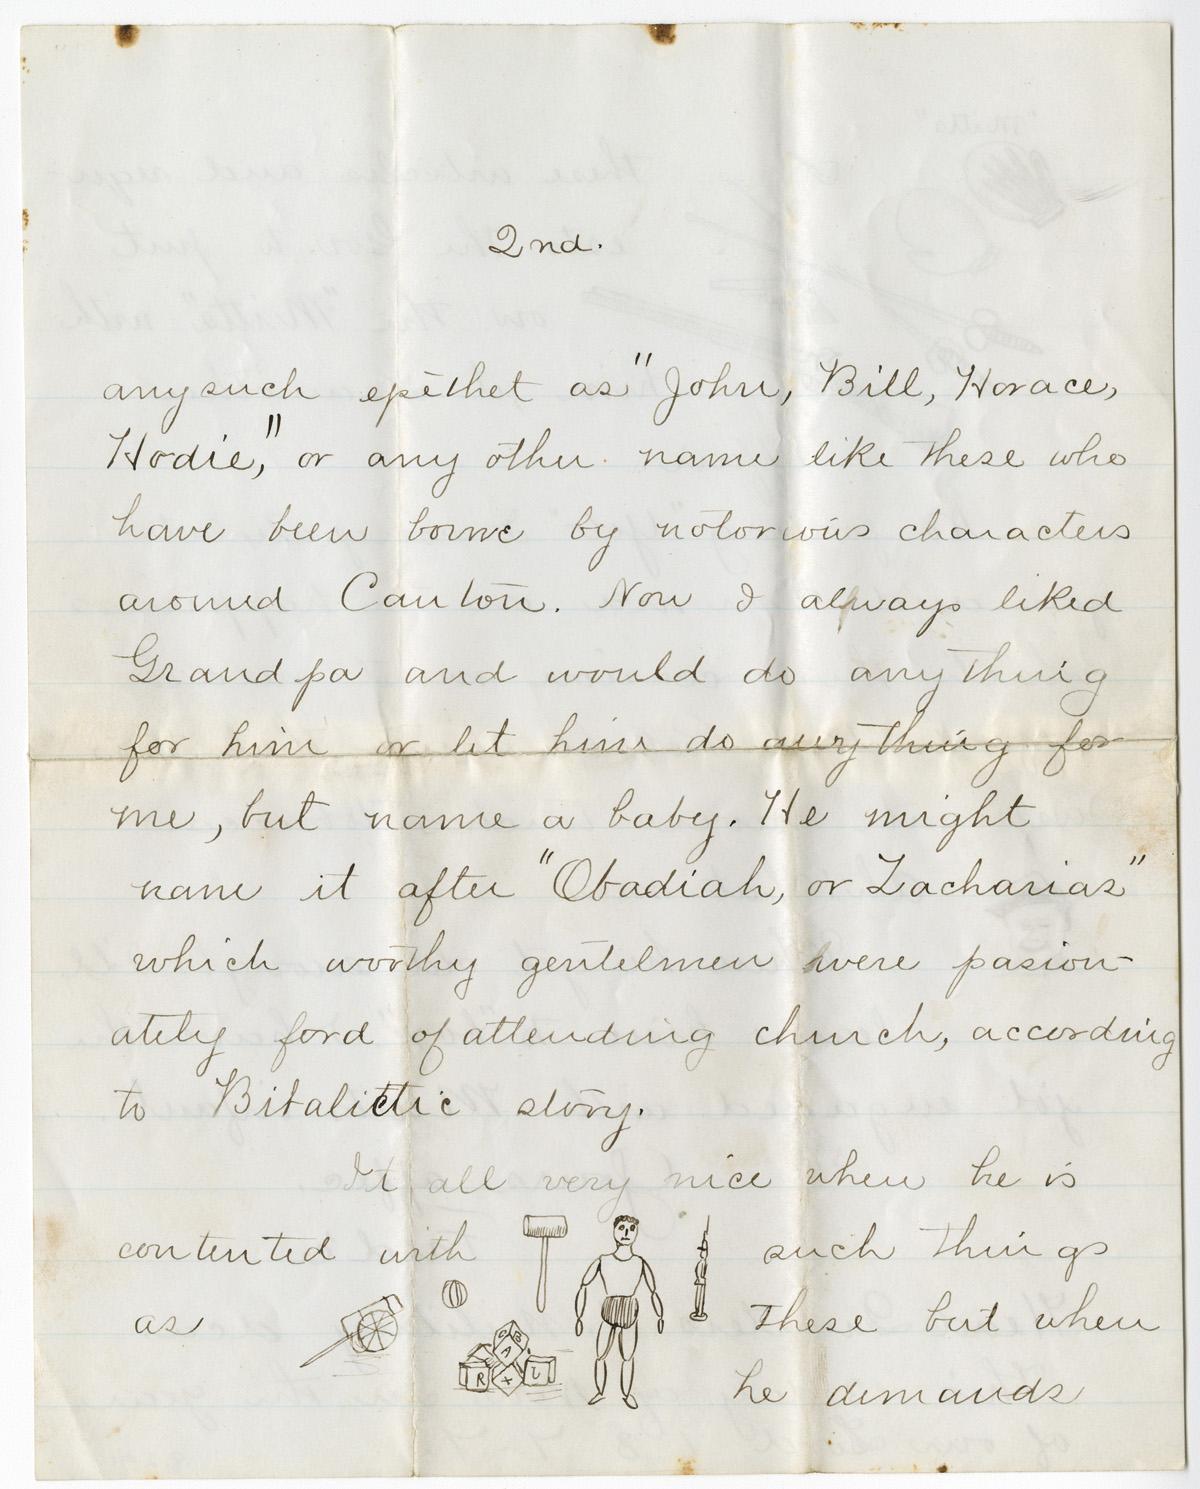 2nd.
any such epithet as "John, Bill, Horace,
Hodie," or any other name like these who
have been borne by notorious characters
around Canton. Now I always liked
Grandpa and would do anything
for him or let him do anything for
me, but name a baby. He might
name it after "Obadiah, or Zacharias"
which worthy gentelmen were pasion-
ately fond of attending church, according
to story.
It all very nice when he is
contented with such things
as these but when
he demands